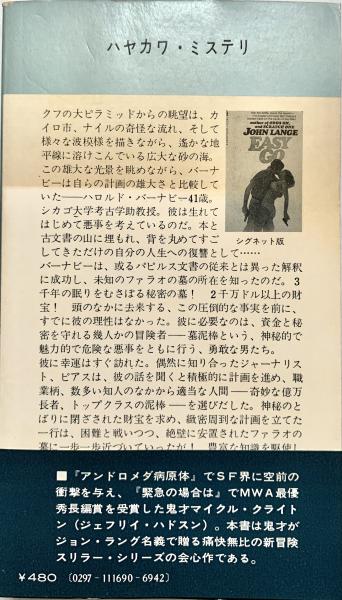 ハヤカワ・ミステリ
クフの大ピラミッドからの眺望は、カ
イロ市、ナイルの奇怪な流れ、そして
様々な波模様を描きながら、遙かな地
平線に溶けこんでいる広大な砂の海。
この雄大な光景を眺めながら、バーナ
ビーは自らの計画の雄大さと比較して
いた——ハロルド・バーナビー41歳。
シカゴ大学考古学助教授。彼は生れて
はじめて悪事を考えているのだ。本と
古文書の山に埋もれ、背を丸めてすご
してきただけの自分の人生への復讐として……
author of ODDS ON,
and SCRATCH ONE
JOHN LANGE
EASY
GO
シグネット版
バーナビーは、或るパピルス文書の従来とは異った解釈
に成功し、未知のファラオの墓の所在を知ったのだ。3
千年の眠りをむさぼる秘密の墓！ 2千万ドル以上の財
宝！ 頭のなかに去来する、この圧倒的な事実を前に、
すでに彼の理性はなかった。彼に必要なのは、資金と秘
密を守れる幾人かの冒険者——墓泥棒という、神秘的で
魅力的で危険な悪事をともに行う、勇敢な男たち。
彼に幸運はすぐ訪れた。偶然に知り合ったジャーナリス
ト、ピアスは、彼の話を聞くと積極的に計画を進め、職
業柄、数多い知人のなかから適当な人間——奇妙な億万
長者、トップクラスの泥棒——を選びだした。神秘のと
ばりに閉ざされた財宝を求め、緻密周到な計画を立てた
一行は、困難と戦いつつ、絶壁に安置されたファラオの
墓に一歩一歩近づいていったが！ 豊富な知識を駆使し
■『アンドロメダ病原体』でSF界に空前の
衝撃を与え、『緊急の場合は』でMWA最優
秀長編賞を受賞した鬼才マイクル・クライト
ン（ジェフリイ・ハドスン）。本書は鬼才が
ジョン・ラング名義で贈る痛快無比の新冒険
スリラー・シリーズの会心作である。
￥480 〔0297－111690－6942〕